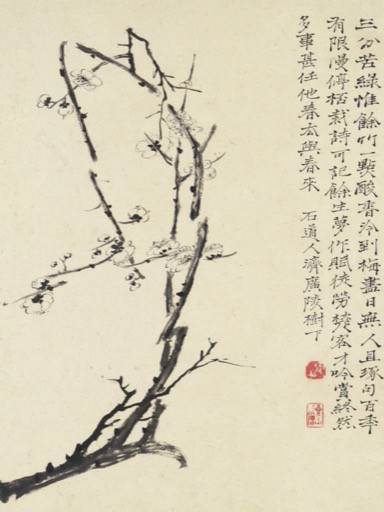 三分苦綠惟餘竹一點酸香冷到梅盡日無人且琢句百年
有限慢停杯栽詩可記餘生夢作賦徒勞幾客才吟賞終然
多事甚任他春去與春來
石道人濟廣陵樹下